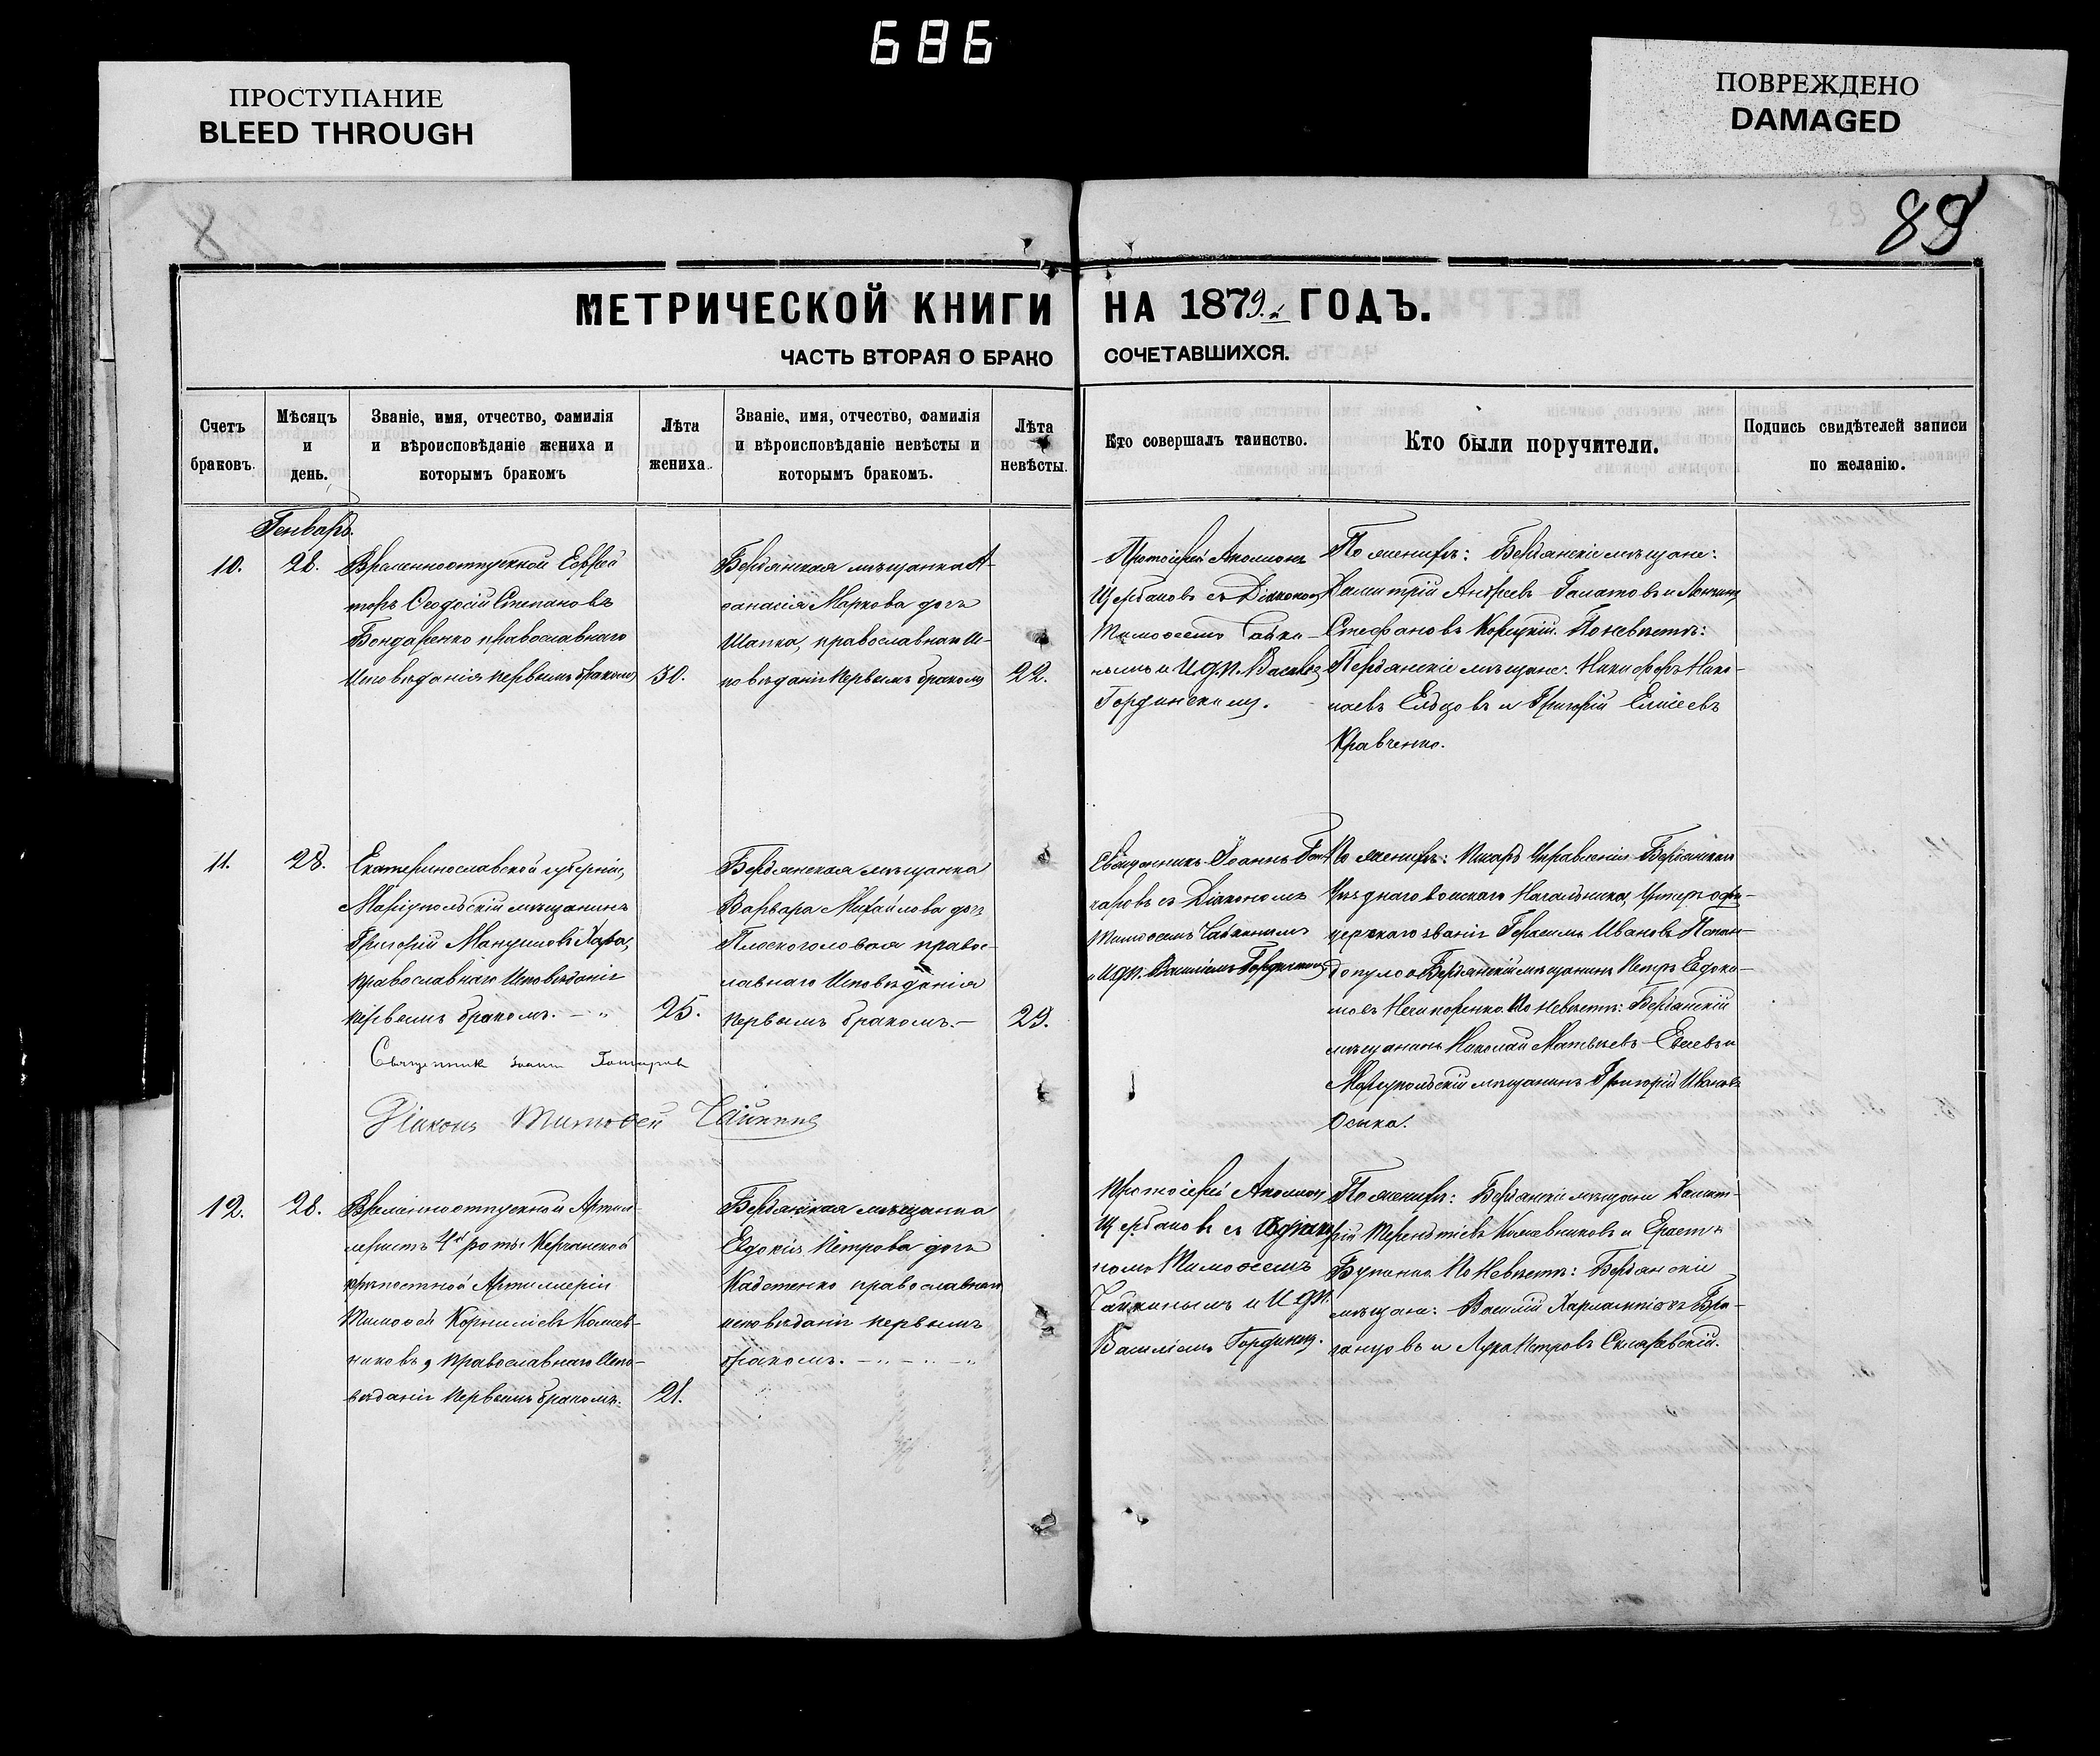 686
ПРОСТУПАНИЕ
BLEED THROUGH
ПОВРЕЖДЕНО
DAMAGED
89
МЕТРИЧЕСКОЙ КНИГИ НА 1879 ГОДЪ.
ЧАСТЬ ВТОРАЯ О БРАКОСОЧЕТАВШИХСЯ.
Счетъ браковъ.
Мѣсяцъ и день.
Званіе, имя, отчество, фамилія и вѣроисповѣданіе жениха и которымъ бракомъ
Лѣта жениха.
Званіе, имя, отчество, фамилія и вѣроисповѣданіе невѣсты и которымъ бракомъ.
Лѣта невѣсты.
Кто совершалъ таинство.
Кто были поручители.
Подпись свидѣтелей записи по желанію.
Генварь.
10.
28.
Временноотпускной Ефрей
торъ Ѳеодосій Степановъ
Бондаренко православнаго
исповѣданія первымъ бракомъ
30.
Бердянская мѣщанка А-
ѳанасія Маркова дочь
Шапка, православнаго и-
повѣданія первымъ бракомъ
22.
Протоіерей
Щербаковъ съ Діакономъ
Тимоѳеемъ Чайки-
нымъ и И.д.п. Василіемъ
Гординскимъ.
По женихѣ: Бердянскіе мѣщане:
Димитрій Андреевъ Галатовъ и
Стефановъ Корецкій. По невѣстѣ:
Бердянскіе мѣщане: Никифоръ Нико-
лаевъ Елецовъ и Григорій Елисеевъ
Кравченко.
11.
28.
Екатеринославской губерніи,
Маріупольскій мѣщанинъ
Григорій Хара,
православнаго исповѣданія
первымъ бракомъ. — „
25.
Бердянская мѣщанка
Варвара Михайлова дочь
Плоскоголовая право-
славнаго исповѣданія
первымъ бракомъ. —
29.
Священникъ Іоаннъ Гон-
чаровъ съ Діакономъ
Тимоѳеемъ Чайкинымъ
и И.д.п. Василіемъ Гординскимъ
По женихѣ: Писарь Управленія Бердянскаго
Уѣзднаго воинскаго Начальника, Унтеръ офи-
церскаго званія Герасимъ Ивановъ Папан-
допуло и Бердянскій мѣщанинъ Петръ Евдоки-
мовъ Нечипоренко. По невѣстѣ: Бердянскій
мѣщанинъ Николай Матвѣевъ и
Маріупольскій мѣщанинъ Григорій Ивановъ
Осыка.
Священникъ Іоаннъ Гончаровъ
Діаконъ Тимоѳей Чайкинъ
12.
28.
Временноотпускной Артил-
леристъ 4й роты Керчанской
крѣпостной Артиллеріи
Тимоѳей Корниліевъ Колесни-
никовъ, православнаго испо-
вѣданія первымъ бракомъ.
21.
Бердянская мѣщанка
Евдокія Петрова дочь
православнаго
исповѣданія первымъ
бракомъ. — „ — „ — „
Протоіерей
Щербаковъ съ Діако-
номъ Тимоѳеемъ
Чайкинымъ и И.д.п.
Василіемъ Гординск.
По женихѣ: Бердянскіе мѣщане Димит-
рій Терентіевъ и Ерастъ
По Невѣстѣ: Бердянскіе
мѣщане: Василій Харлампіевъ Бра-
ганцовъ и Лука Петровъ Склярскій.